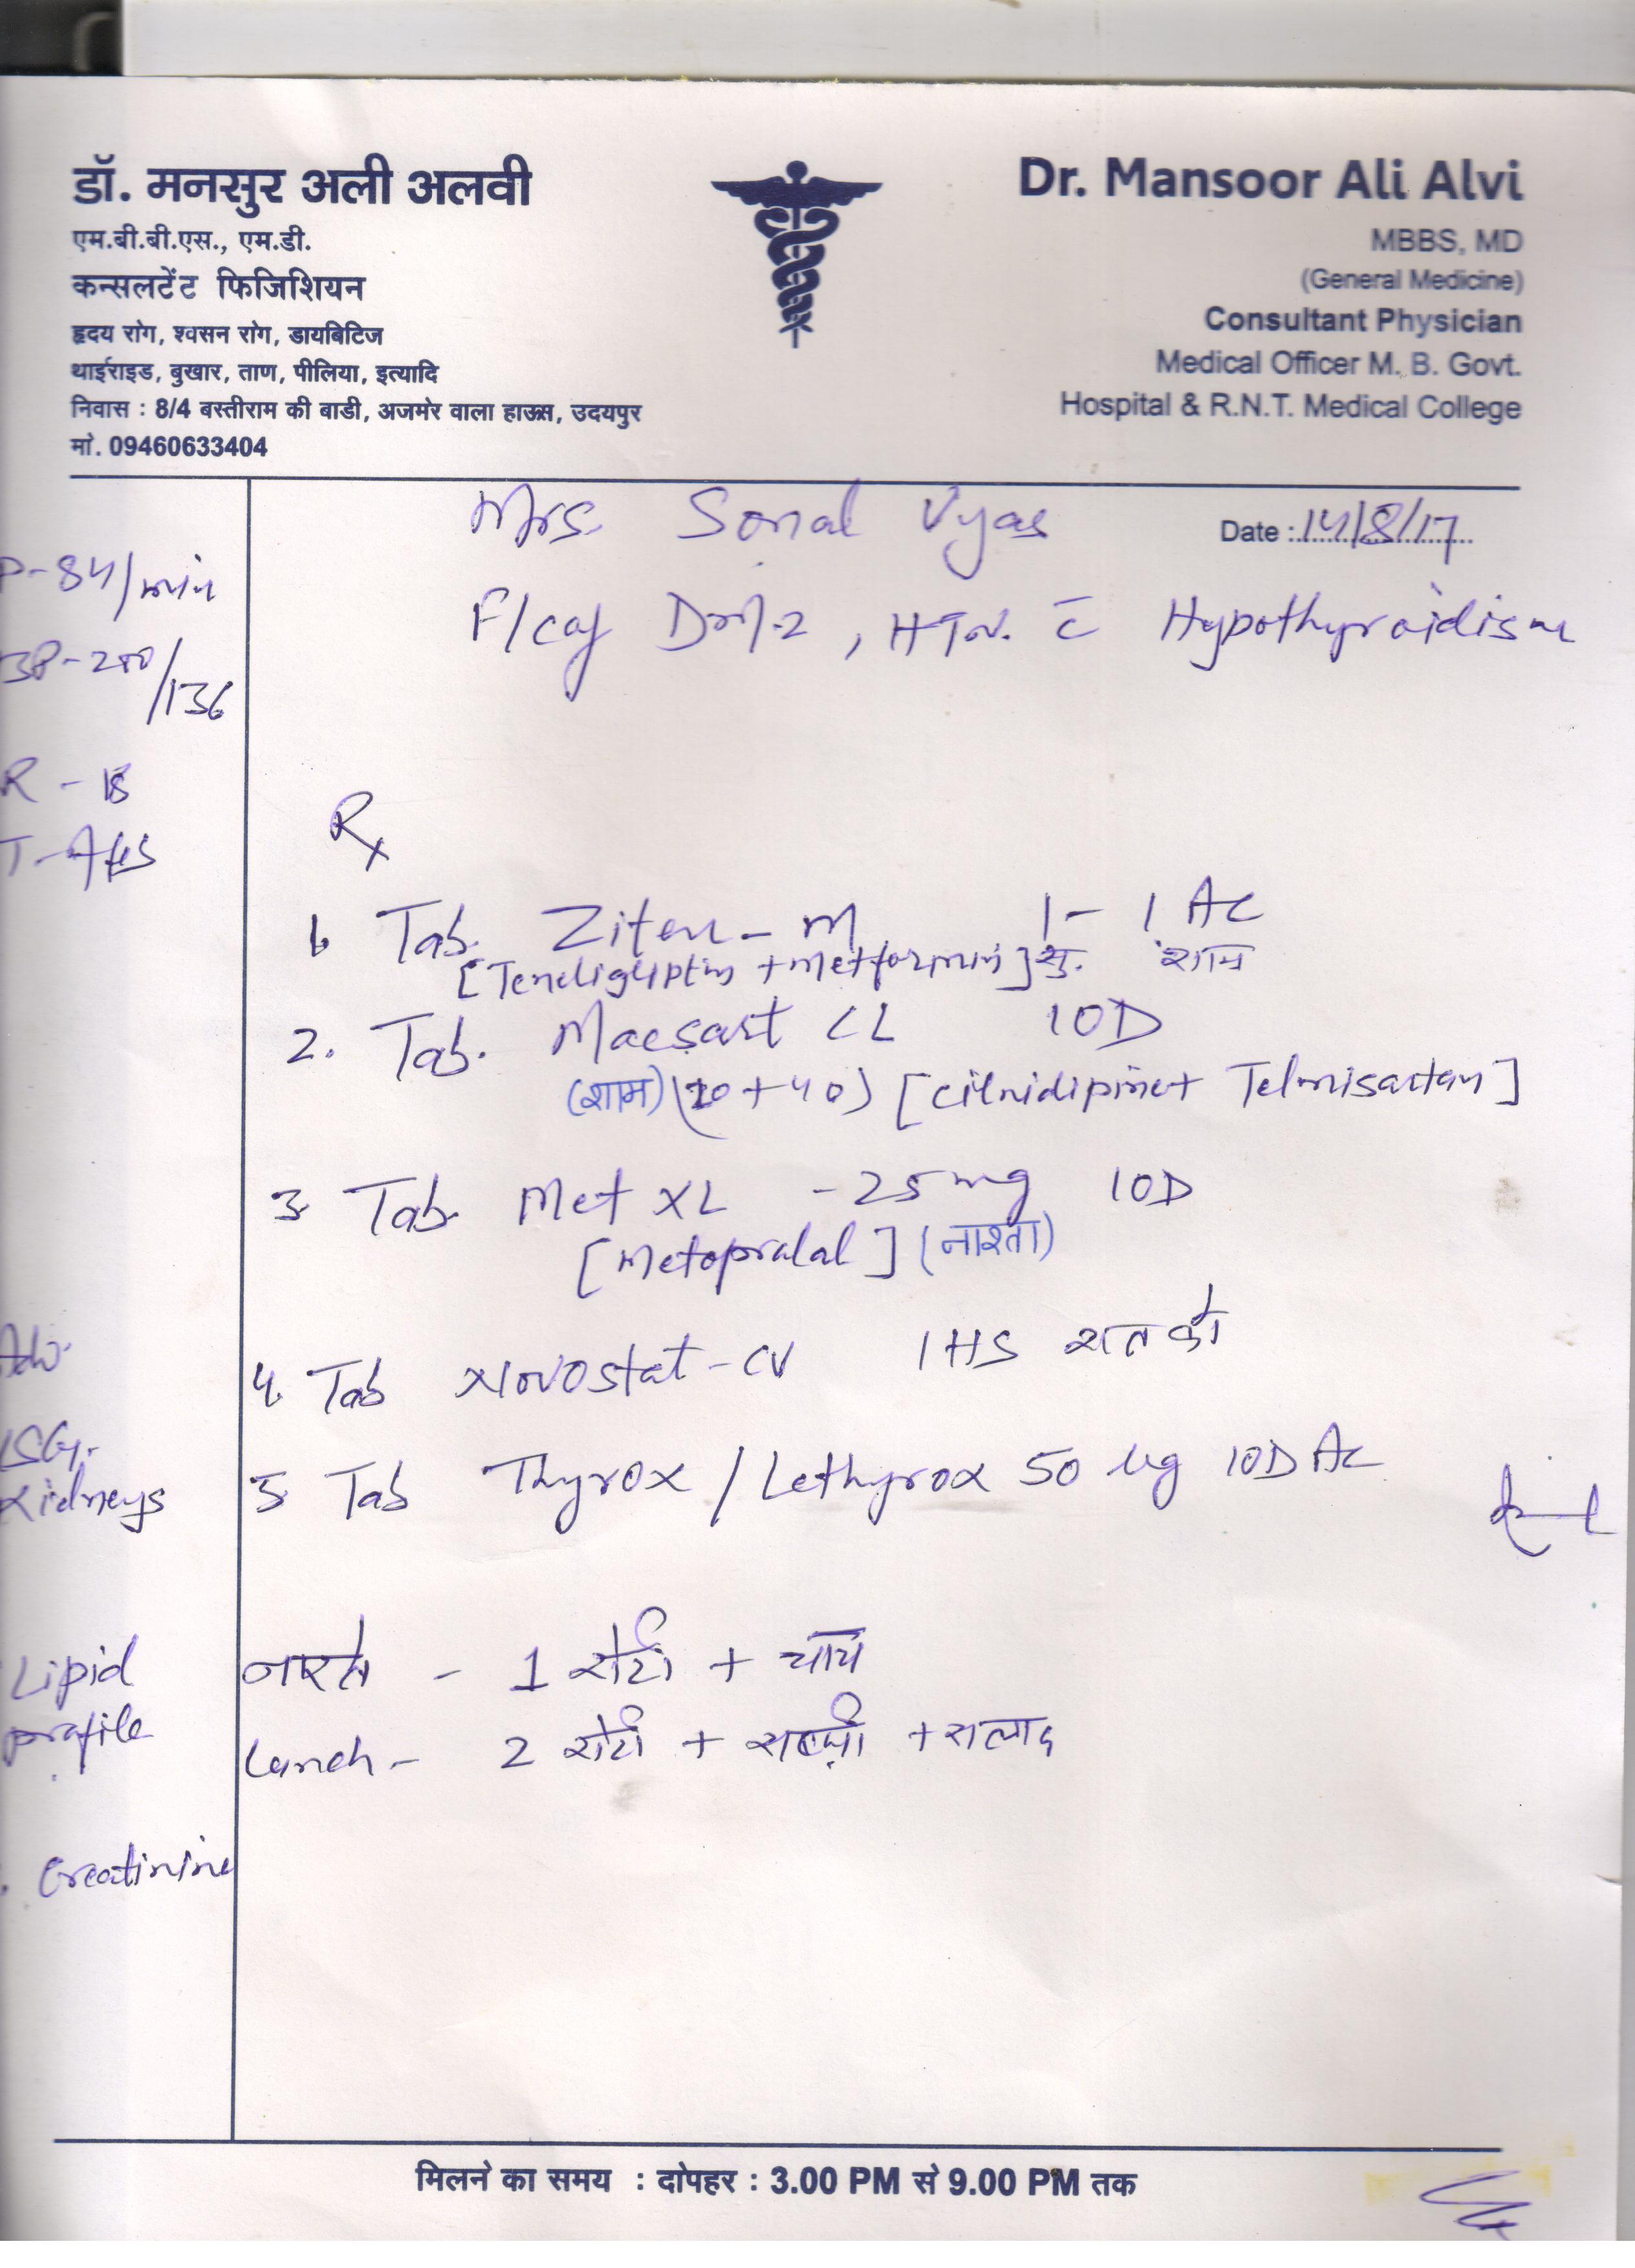 डॉ. मनसुर अली अलवी
एम.बी.बी.एस., एम.डी.
कन्सलटेंट फिजिशियन
हृदय रोग, श्वसन रोग, डायबिटिज
थाईराइड, बुखार, ताण, पीलिया, इत्यादि
निवास : 8/4 बस्तीराम की बाडी, अजमेर वाला हाऊस, उदयपुर
मो. 09460633404
Dr. Mansoor Ali Alvi
MBBS, MD
(General Medicine)
Consultant Physician
Medical Officer M. B. Govt.
Hospital & R.N.T. Medical College
Mrs. Sonal Vyas
Date : 14/8/17
F/c/o DM-2, HTN. c̄ Hypothyroidism
P-84/min
BP-200/136
R - 18
T-Afeb
Rx
1. Tab. Ziten-M 1 - 1 AC
[Teneligliptin + Metformin] सु. शाम
2. Tab. Macsart CL 1OD
(शाम) (10+40) [Cilnidipine + Telmisartan]
3 Tab. Met XL - 25 mg 1OD
[Metopralal] (नाश्ता)
4. Tab Novostat-CV 1HS रात को
5 Tab Thyrox / Lethyrox 50 ug 1OD AC
Adv.
USG.
Kidneys
Lipid
profile
. Creatinine
नाश्ते - 1 रोटी + चाय
Lunch - 2 रोटी + सब्जी + सलाद
मिलने का समय : दोपहर : 3.00 PM से 9.00 PM तक